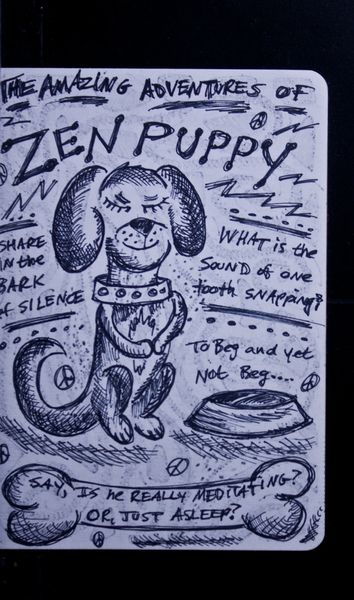 THE AMAZING ADVENTURES OF
ZEN PUPPY
SHARE
in the
BARK
of SILENCE
WHAT is the
SOUND of one
tooth SNAPPING?
To Beg and yet
NOT Beg....
SAY, IS HE REALLY MEDITATING?
OR, JUST ASLEEP?